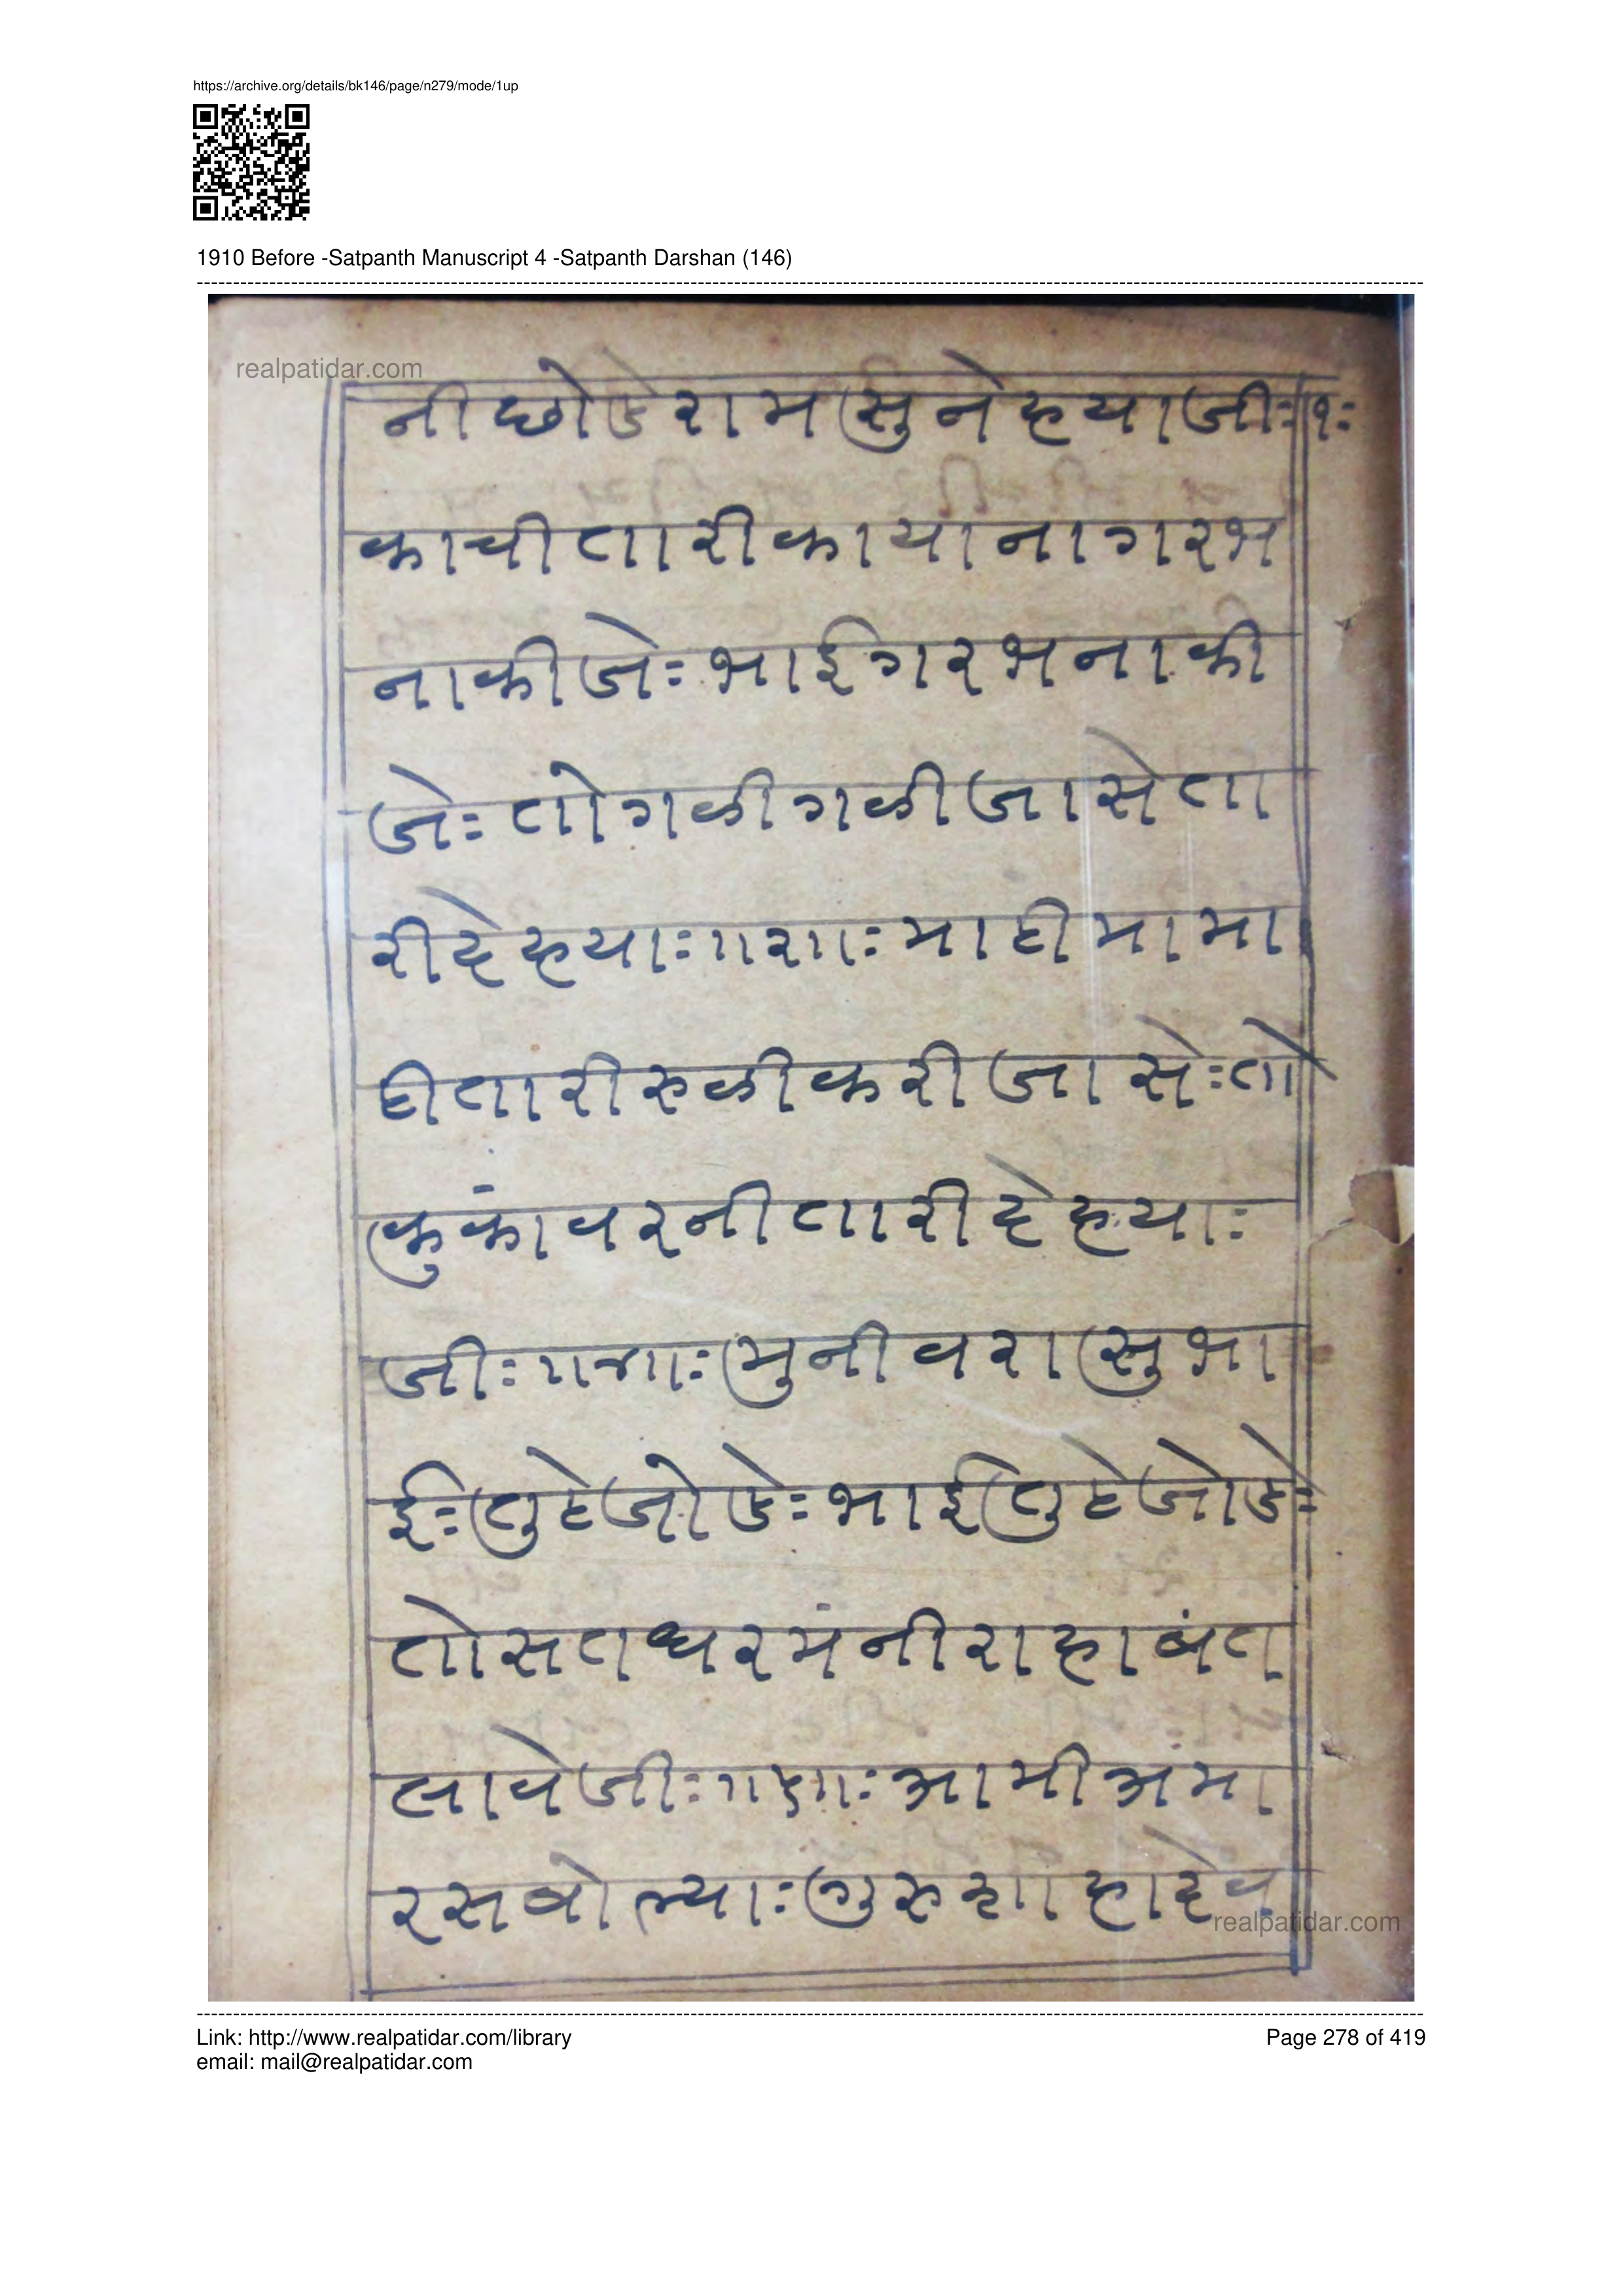 https://archive.org/details/bk146/page/n279/mode/1up
1910 Before -Satpanth Manuscript 4 -Satpanth Darshan (146)
realpatidar.com
नी छोडे राम सुनेह्याजीः॥१ः
काची तारी काया ना गरभ
ना कीजेः भाई गरभ ना की
जेः तो गळी गळी जासे ता
री देह्याः॥३॥ः माही मा मा
ही तारी रुळी करी जासेः तो
कुकांवरनी तारी देह्याः
जीः॥४॥ः मुनीवरा सु भा
ईः तुटे जोडेः भाई तुटे जोडेः
तो सत धरमं नी राहा बंत
लावेजीः॥५॥ः आमी अंमा
रस बोल्याः गुरु शाहादेव
realpatidar.com
Link: http://www.realpatidar.com/library
Page 278 of 419
email: mail@realpatidar.com